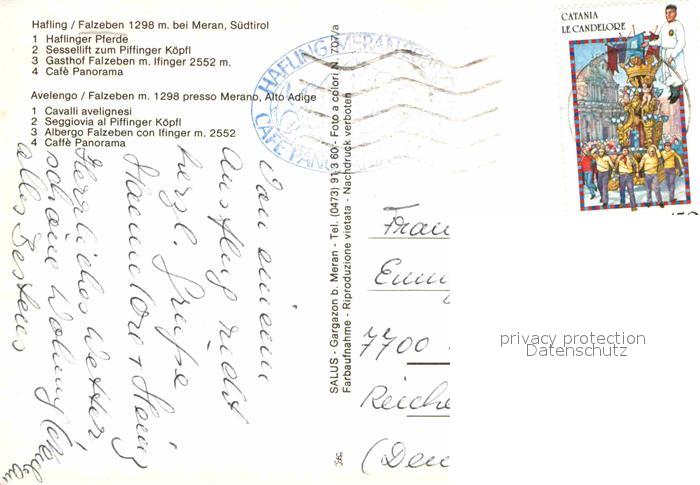 Hafling / Falzeben 1298 m. bei Meran, Südtirol
1 Haflinger Pferde
2 Sessellift zum Piffinger Köpfl
3 Gasthof Falzeben m. Ifinger 2552 m.
4 Cafè Panorama
Avelengo / Falzeben m. 1298 presso Merano, Alto Adige
1 Cavalli avelignesi
2 Seggiovia al Piffinger Köpfl
3 Albergo Falzeben con Ifinger m. 2552
4 Caffè Panorama
Von einem
Ausflug
herzl. Grüße
Hannelore + Heinz
Herrliches Wetter
schöne Wohnung
alles Bestens
SALUS - Gargazon b. Meran - Tel. (0473) 91 3 60 - Foto a colori N. 707/a
Farbaufnahme - Riproduzione vietata - Nachdruck verboten
HAFLING
CATANIA
LE CANDELORE
Frau
7700
Reiche
(Deu
privacy protection
Datenschutz